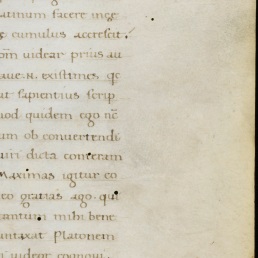 latinum facere inge
cumulus accrescit
videar prius au
aue. N. existimes. qd
ut sapientius scrip
uod quidem ego nc̄
um ob convertendi
uiri dicta conteram
Maximas igitur co
eo gratias ago. qui
tantum mihi bene
untaxat Platonem
videar cognoui